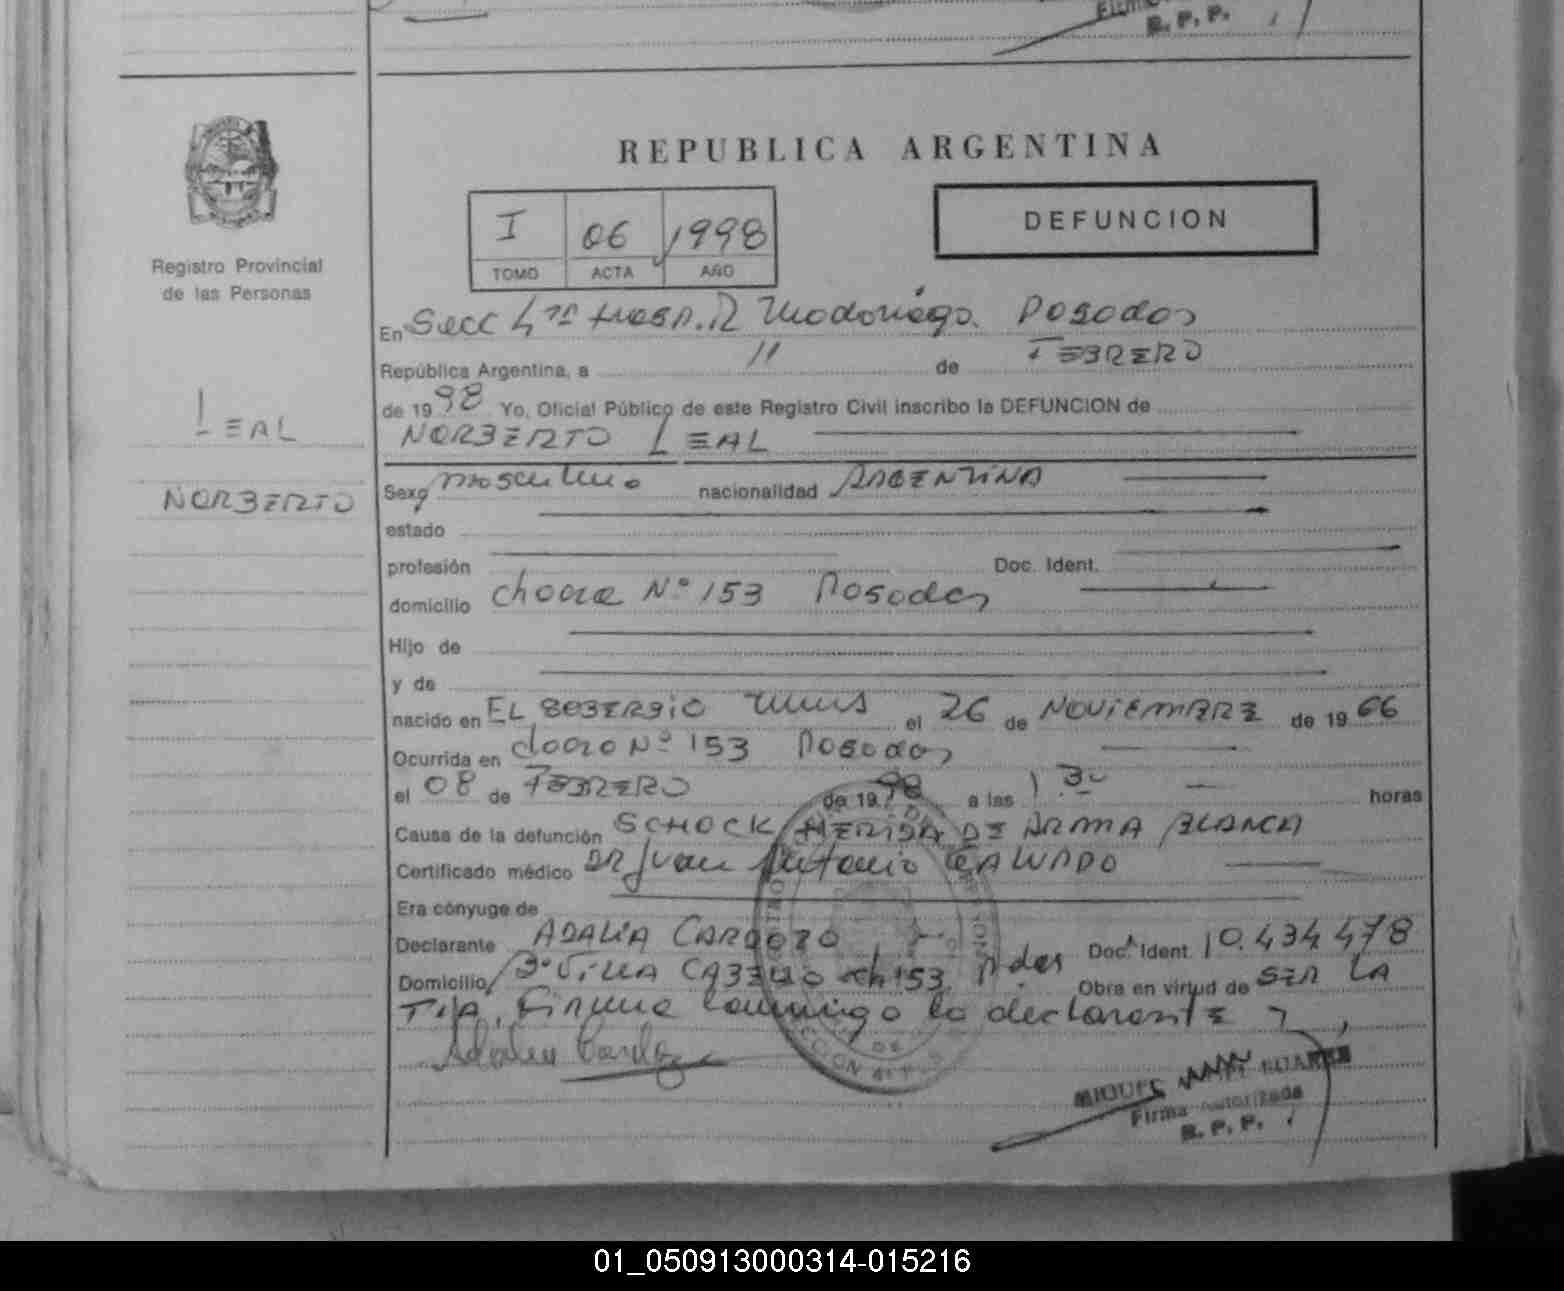 R. P. P.
REPUBLICA ARGENTINA
I 06 1998
TOMO ACTA AÑO
DEFUNCION
Registro Provincial
de las Personas
En Secc 4ta Hosp. R Madariaga. Posadas
República Argentina, a 11 de FEBRERO
de 1998 Yo, Oficial Público de este Registro Civil inscribo la DEFUNCION de
NORBERTO LEAL
LEAL
NORBERTO
Sexo masculino nacionalidad ARGENTINA
estado
profesión Doc. Ident.
domicilio chacra Nº 153 Posadas
Hijo de
y de
nacido en EL SOBERBIO el 26 de NOVIEMBRE de 1966
Ocurrida en chacra Nº 153 Posadas
el 08 de FEBRERO de 1998 a las 1 30 horas
Causa de la defunción SCHOCK HERIDA DE ARMA BLANCA
Certificado médico DR Juan Antonio GALVADO
Era cónyuge de
Declarante ADALIA CARDOZO Doc. Ident 10.434 478
Domicilio Bº VILLA CABELLO ch 153 Pdas Obra en virtud de SER LA
TIA, Firma conmigo la declarante
Adalia Cardozo
MIGUEL
Firma Autorizada
R. P. P.
01_050913000314-015216